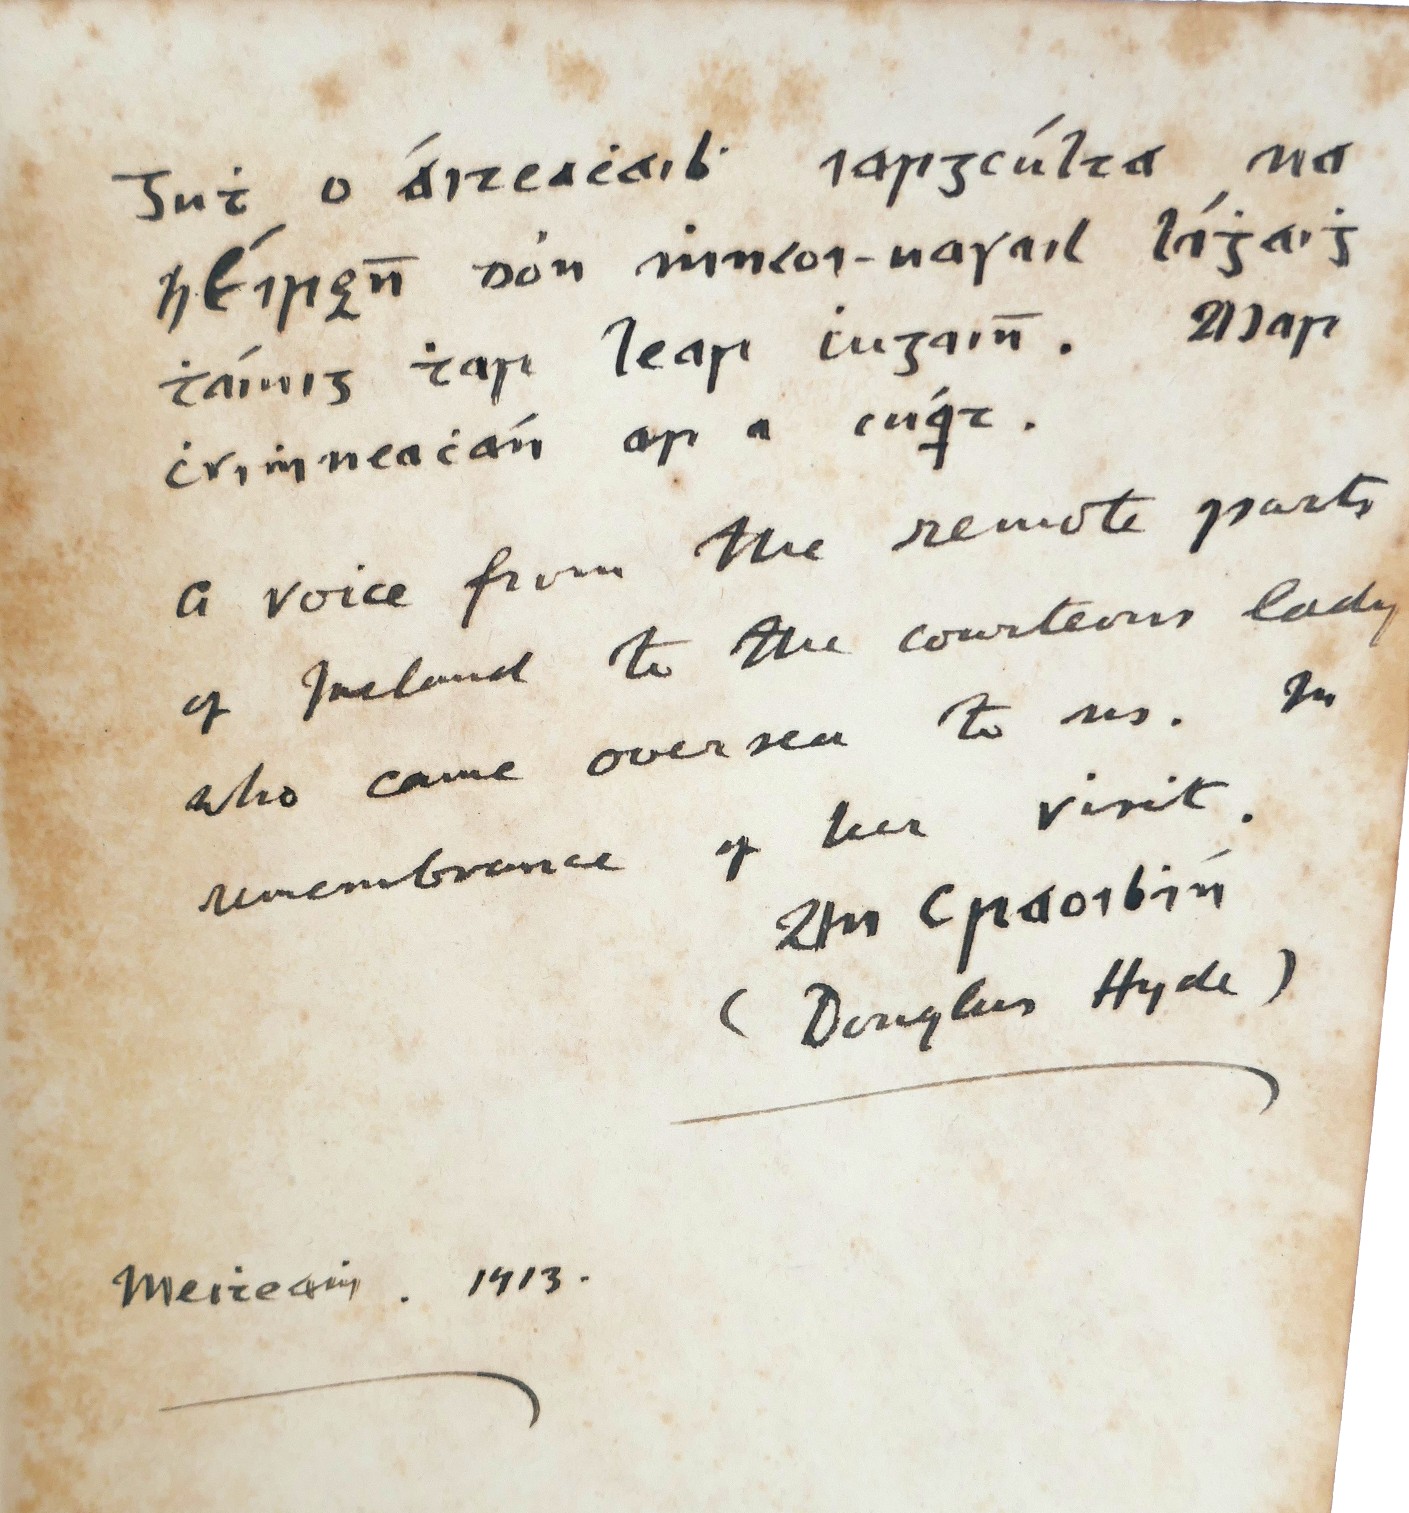 Guṫ o áiteaċaiḃ iargcúlta na
hÉireann do'n ṁnaoi-uasail láġaiġ
ṫáinig ṫar lear ċugainn. Mar
ċuiṁneaċán ar a cuairt.
A voice from the remote parts
of Ireland to the courteous lady
who came oversea to us. In
remembrance of her visit.
An Craoibín
(Douglas Hyde)
Meiṫeaṁ. 1913.